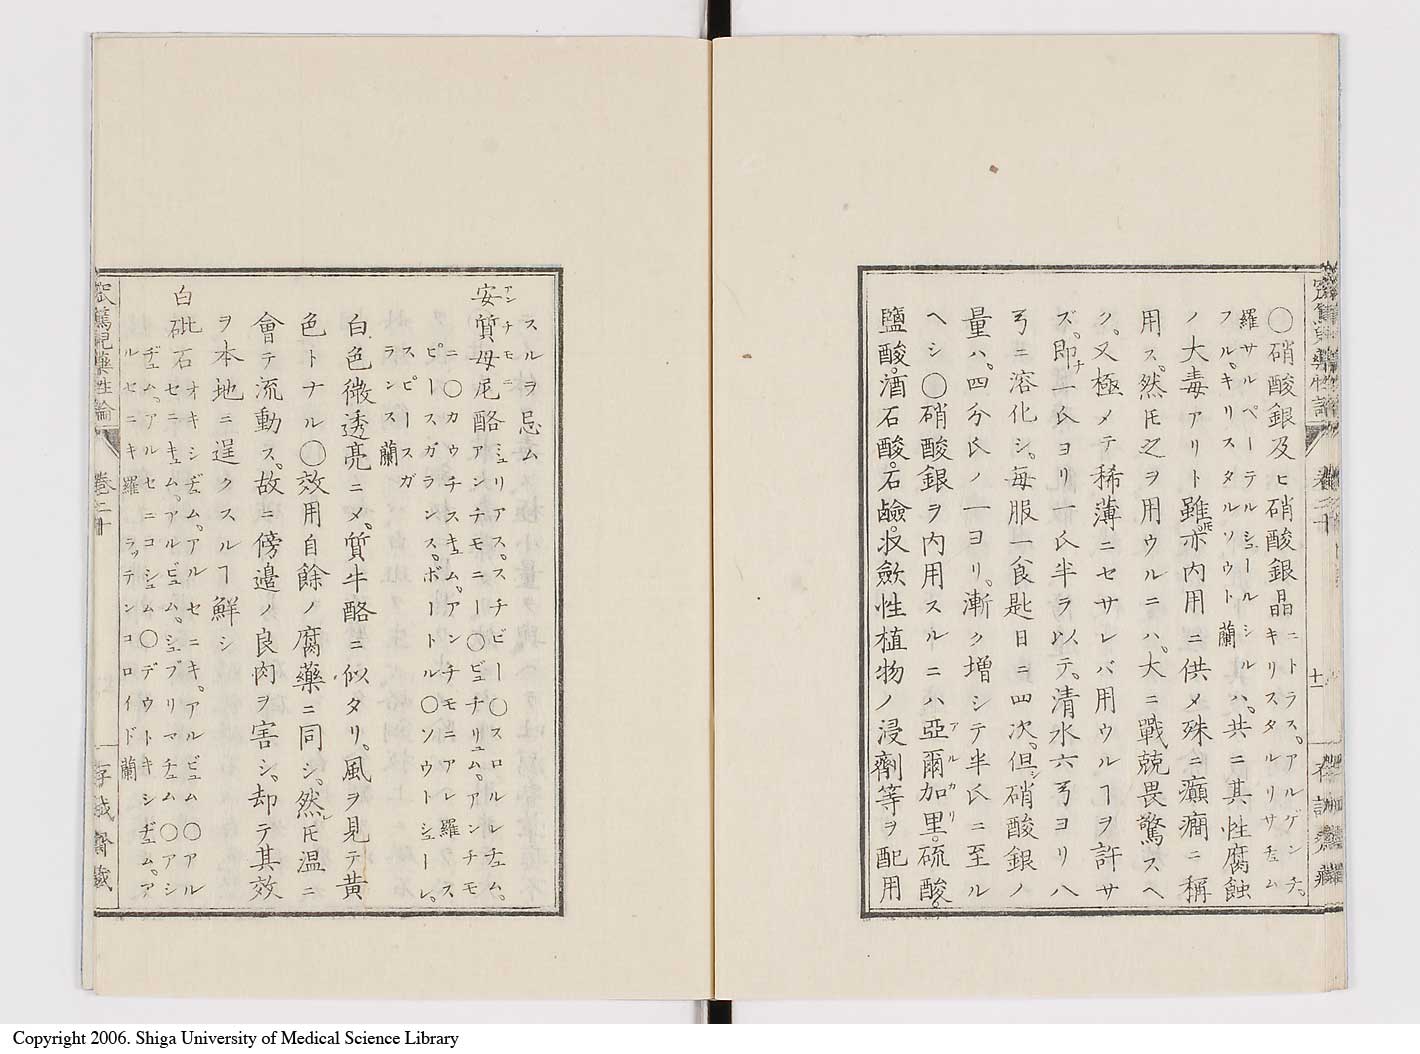 〇硝酸銀及ヒ硝酸銀晶ニトラス。アルゲンチ。
キリスタルリサチュム
羅サルペーテルシュールシルハ。共ニ其性腐蝕
フル。キリスタルソウト蘭
ノ大毒アリト雖𪜈亦内用ニ供メ殊ニ癲癇ニ稱
用ス。然𪜈之ヲ用ウルニハ。大ニ戰兢畏驚スヘ
ク。又極メテ稀薄ニセサレバ用ウルヿヲ許サ
ズ。即ナ一氏ヨリ一氏半ヲ以テ。清水六弓ヨリ八
弓ニ溶化シ。毎服一食匙日ニ四次。但シ硝酸銀ノ
量ハ。四分氏ノ一ヨリ。漸ク増シテ半氏ニ至ル
ヘシ〇硝酸銀ヲ内用スルニハ亞爾加里。硫酸。
アルカリ
鹽酸。酒石酸。石鹼。收歛性植物ノ浸劑等ヲ配用
十一
スルヲ忌ム
安質母尼酪ミュリアス。スチビー〇スロルレチュム。
アンチモニ
アンチモニー〇ビュチリュム。アンチモ
ニ〇カウチスキュム。アンチモニアレ羅ス
ピースガランス。ボートル〇ソウトシューレ。
スピースガ
ランス蘭
白色微透亮ニメ。質牛酪ニ似タリ。風ヲ見テ黄
色トナル〇效用自餘ノ腐藥ニ同シ。然レ𪜈温ニ
會テ流動ス。故ニ傍邊ノ良肉ヲ害シ。却テ其效
ヲ本地ニ逞クスルヿ鮮シ
白砒石オキシヂュム。アルセニキ。アルビュム〇アル
セニキュム。アルビュム。シュブリマチュム〇アシ
ヂュム。アルセニコシュム〇デウトキシヂュム。ア
ルセニキ羅ラッテンコロイド蘭
窊篤兒藥性論
卷二十
存誠齋藏